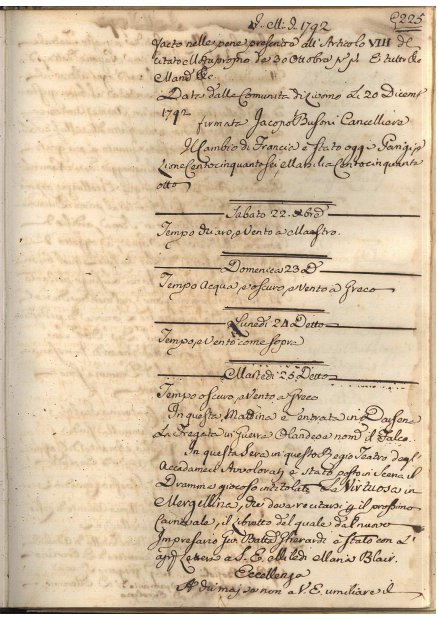 225
1792
fatto nelle pene prescritte all'Articolo VIII del
citato Motuproprio de' 30 Ottobre
Mand. &c.
Data dalla Comunità di Livorno Li 20 Dicemb
1792
firmato Jacopo Busoni Cancelliere
Il Cambio di Francia è stato oggi Parigi,
Lione Centocinquantasei, Marsilia Centocinquanta
otto
Sabato 22. Xbre
Tempo chiaro, e Vento a Maestro.
Domenica 23 D
Tempo Acqua, e oscuro, e Vento a Greco
Lunedì 24 Detto
Tempo, e Vento come sopra
Martedì 25 Detto
Tempo oscuro, e Vento a Greco
In questa Mattina è entrata in Darsena
La Fregata in Guerra Olandese nom. il Falco.
In questa Sera in questo Regio Teatro degl'
Accademici Avvalorati è stato posto in Scena il
Dramma giocoso intitolato La Virtuosa in
Mergellina, che deva recitarsi il prossimo
Carnevale, il Libretto del quale dal nuovo
Impresario Gio. Batta Gherardi è stato con l'
app. Lettera a S. E. Miledi Maria Blair.
Eccellenza
A chi mai se non a V. E. umiliare il